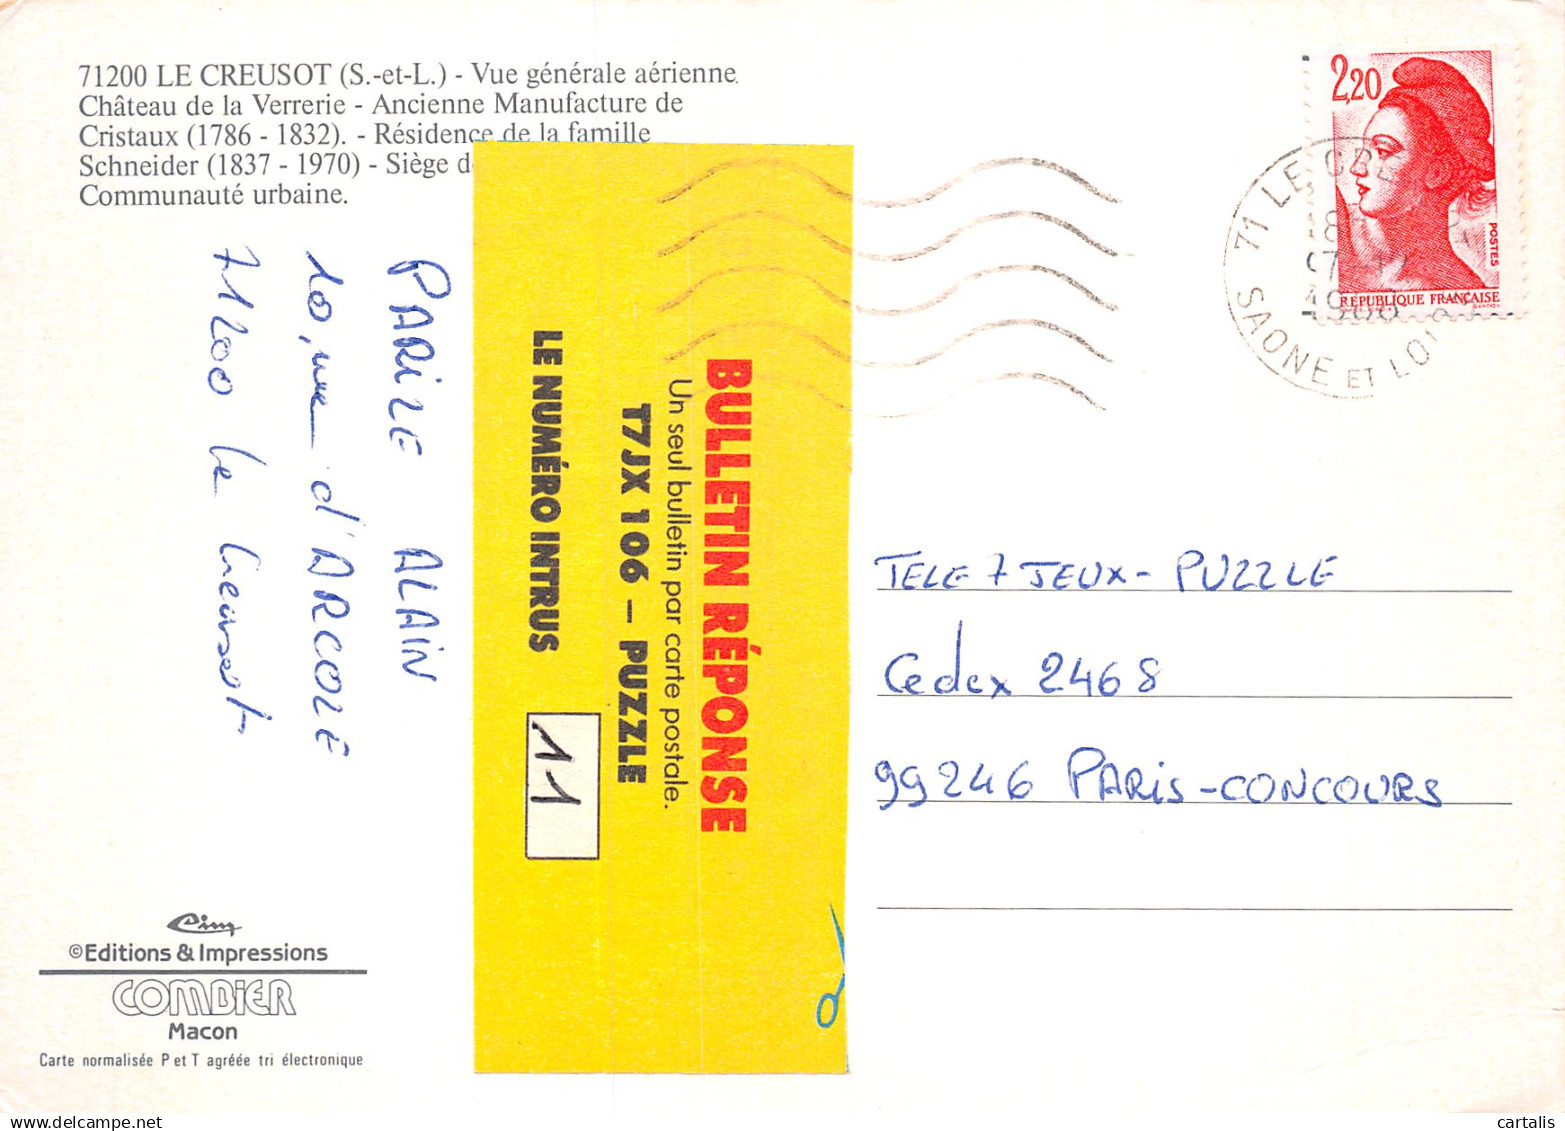 71200 LE CREUSOT (S.-et-L.) - Vue générale aérienne
Château de la Verrerie - Ancienne Manufacture de
Cristaux (1786 - 1832). - Résidence de la famille
Schneider (1837 - 1970) - Siège
Communauté urbaine.
PARIZE ALAIN
10, rue d'ARCOLE
71200 le Creusot
BULLETIN RÉPONSE
Un seul bulletin par carte postale.
T7JX 106 – PUZZLE
LE NUMÉRO INTRUS
11
2,20
POSTES
RÉPUBLIQUE FRANÇAISE
71 LE
SAONE ET
TELE 7 JEUX - PUZZLE
Cedex 2468
99246 PARIS - CONCOURS
Cim
©Editions & Impressions
COMBIER
Macon
Carte normalisée P et T agréée tri électronique
cartalis